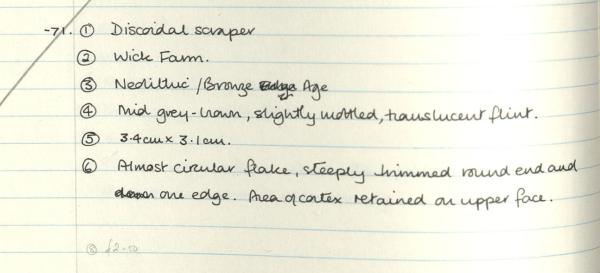 -71. ① Discoidal scraper
② Wick Farm.
③ Neolithic / Bronze Age
④ Mid grey-brown, slightly mottled, translucent flint.
⑤ 3.4cm x 3.1cm.
⑥ Almost circular flake, steeply trimmed round end and
down one edge. Area of cortex retained on upper face.
⑧ £2-50